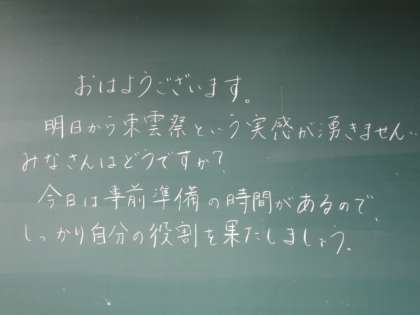 おはようございます。
明日から東雲祭という実感が湧きません、
みなさんはどうですか?
今日は事前準備の時間があるので、
しっかり自分の役割を果たしましょう。